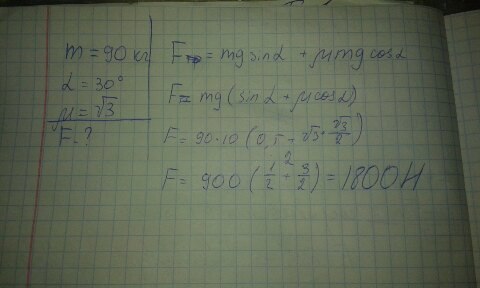 m = 90 кг
α = 30°
μ = √3
F - ?
F = mg sinα + μmg cosα
F = mg (sinα + μcosα)
F = 90·10 (0,5 + √3 · √3/2)
F = 900 (1/2 + 3/2) = 1800 Н
2